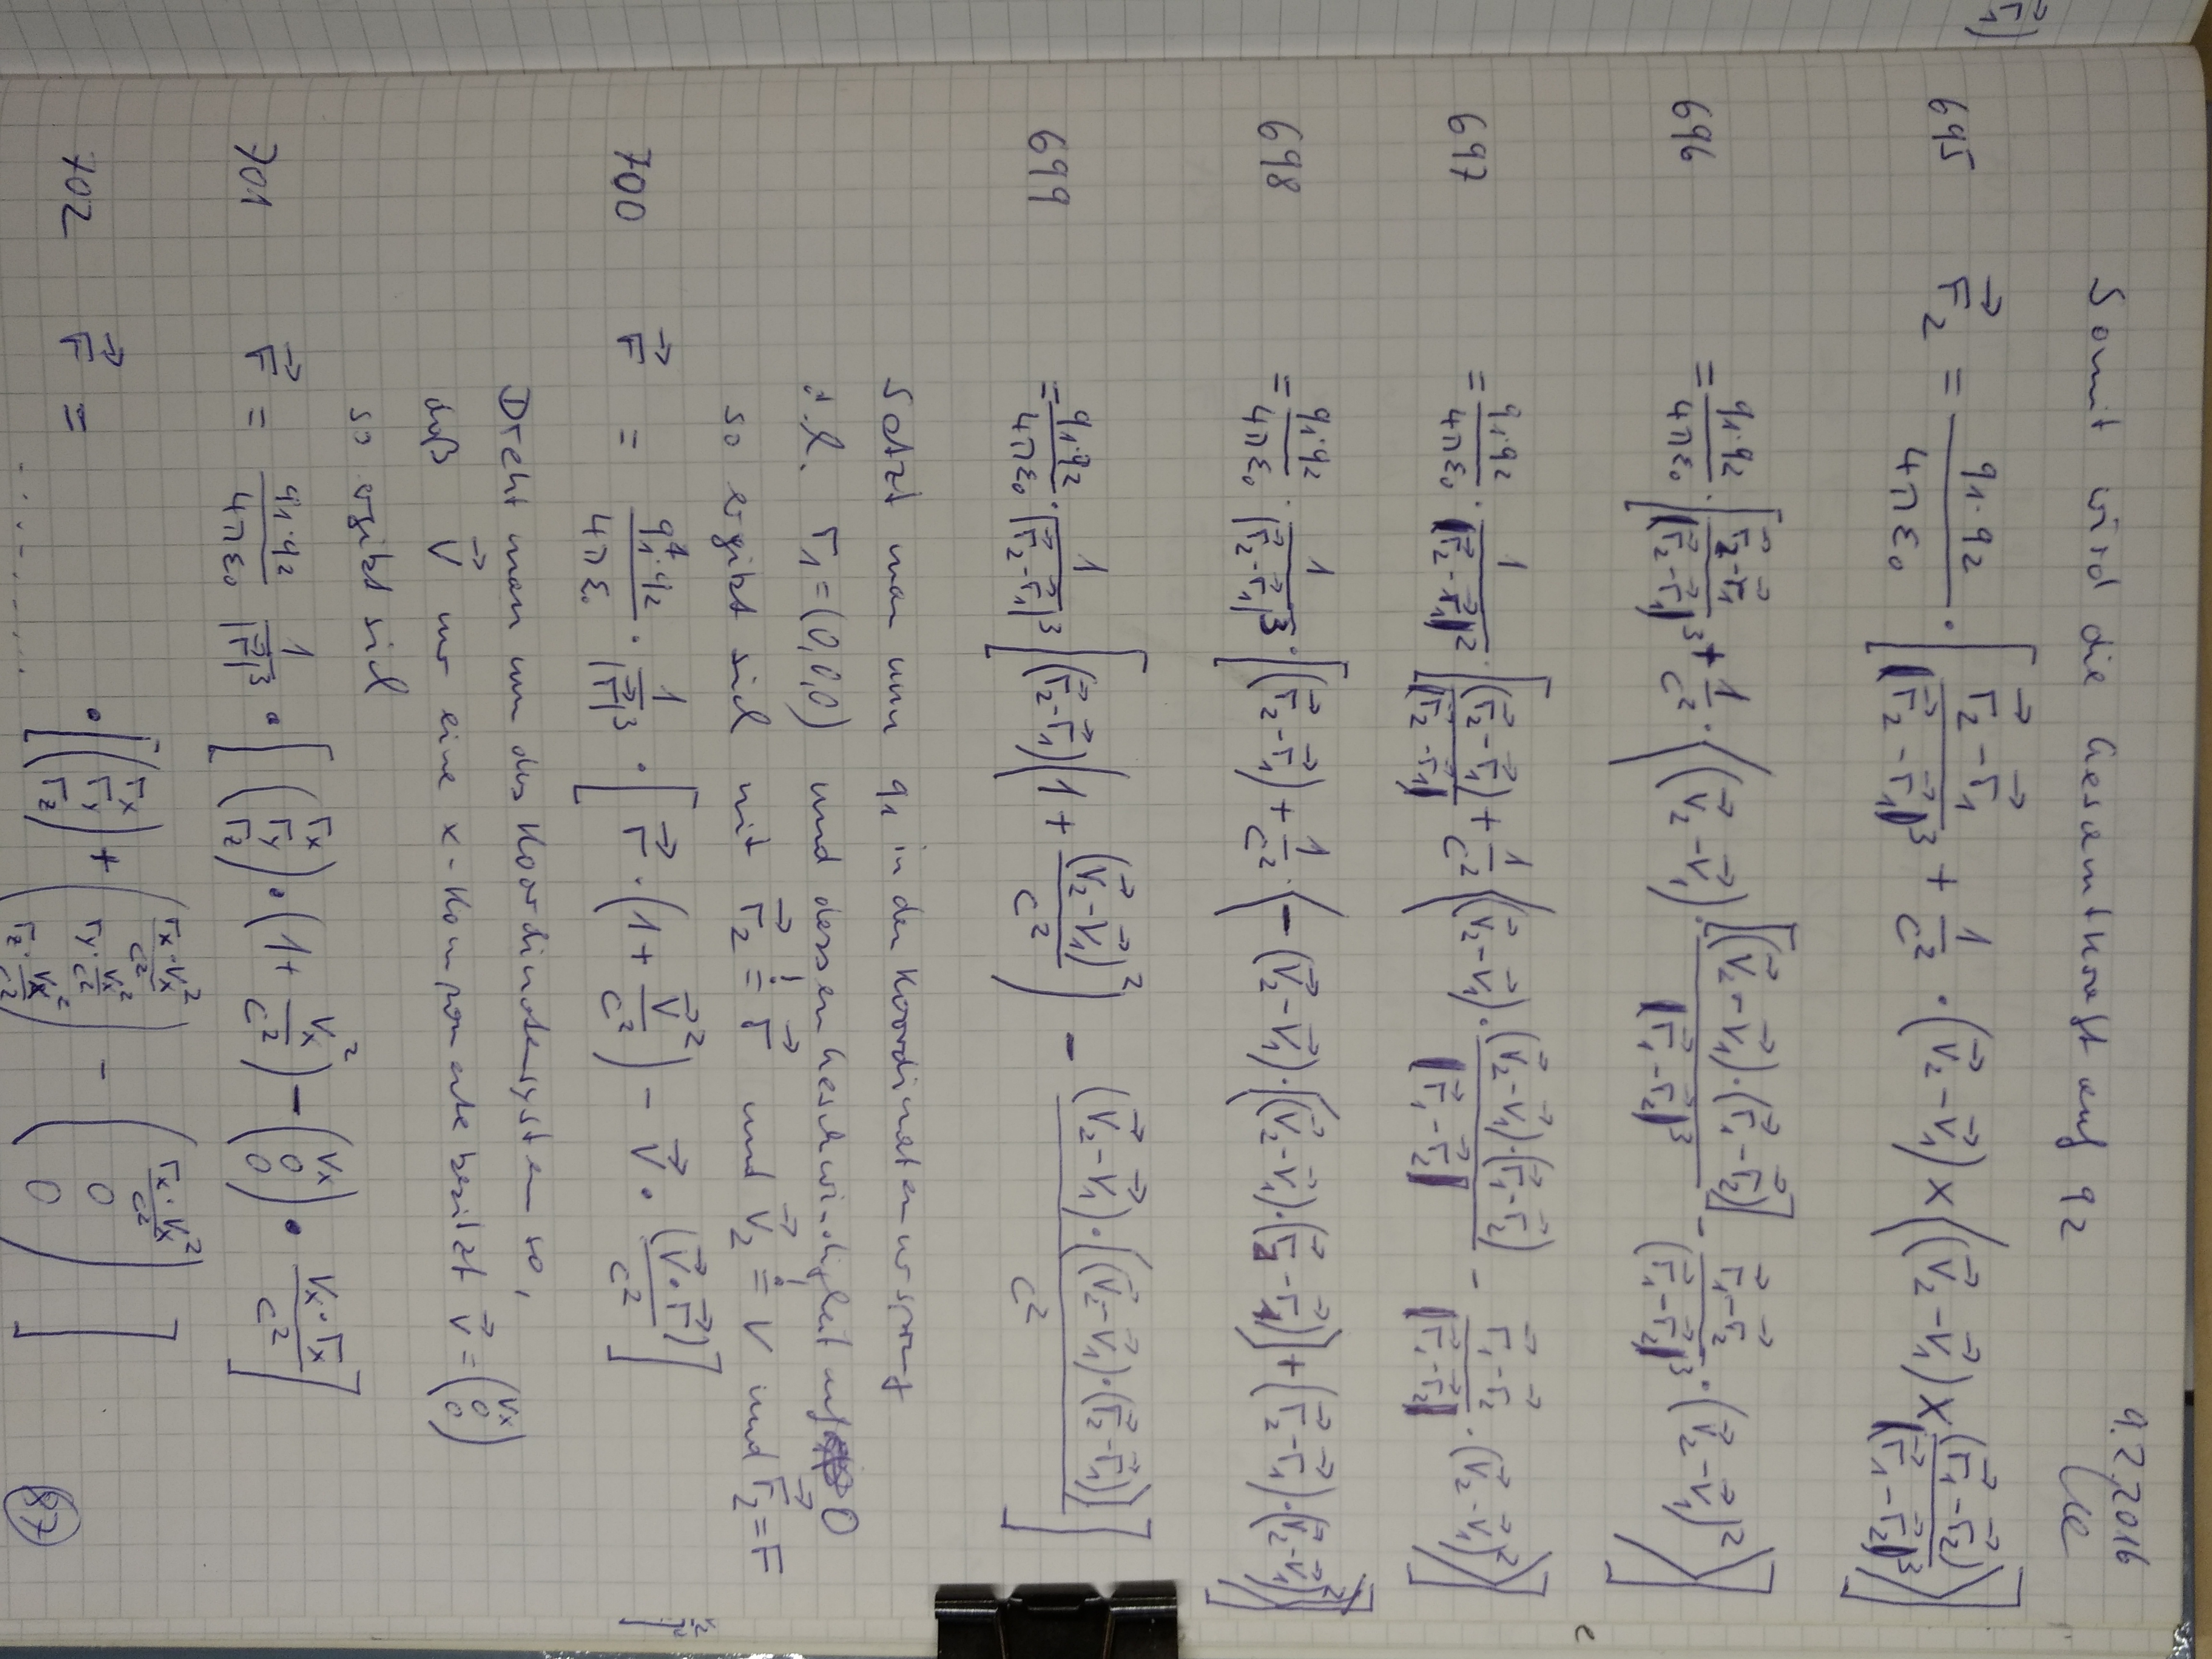 9.2.2016
Somit wird die Gesamtkraft auf q2
695 F⃗₂ = (q₁·q₂)/(4πε₀) · [ (r⃗₂−r⃗₁)/|r⃗₂−r⃗₁|³ + 1/c² · (v⃗₂−v⃗₁) × ( (v⃗₂−v⃗₁) × (r⃗₁−r⃗₂)/|r⃗₁−r⃗₂|³ ) ]
696 = (q₁·q₂)/(4πε₀) · [ (r⃗₂−r⃗₁)/|r⃗₂−r⃗₁|³ + 1/c² · ( (v⃗₂−v⃗₁) · [(v⃗₂−v⃗₁)·(r⃗₁−r⃗₂)]/|r⃗₁−r⃗₂|³ − (r⃗₁−r⃗₂)/|r⃗₁−r⃗₂|³ · (v⃗₂−v⃗₁)² ) ]
697 = (q₁·q₂)/(4πε₀) · 1/|r⃗₂−r⃗₁|² · [ (r⃗₂−r⃗₁)/|r⃗₂−r⃗₁| + 1/c² ( (v⃗₂−v⃗₁) · ((v⃗₂−v⃗₁)·(r⃗₁−r⃗₂))/|r⃗₁−r⃗₂| − (r⃗₁−r⃗₂)/|r⃗₁−r⃗₂| · (v⃗₂−v⃗₁)² ) ]
698 = (q₁·q₂)/(4πε₀) · 1/|r⃗₂−r⃗₁|³ · [ (r⃗₂−r⃗₁) + 1/c² · ( −(v⃗₂−v⃗₁) · ((v⃗₂−v⃗₁)·(r⃗₂−r⃗₁)) + (r⃗₂−r⃗₁)·(v⃗₂−v⃗₁)² ) ]
699 = (q₁·q₂)/(4πε₀) · 1/|r⃗₂−r⃗₁|³ [ (r⃗₂−r⃗₁) ( 1 + (v⃗₂−v⃗₁)²/c² ) − (v⃗₂−v⃗₁)·((v⃗₂−v⃗₁)·(r⃗₂−r⃗₁))/c² ]
Setzt man nun q₁ in den Koordinatenursprung
d.h. r₁=(0,0,0) und dessen Geschwindigkeit auf 0
so ergibt sich mit r⃗₂ ≐ r⃗ und v⃗₂ ≐ v und F⃗₂ = F
700 F⃗ = (q₁·q₂)/(4πε₀) · 1/|r⃗|³ · [ r⃗ · (1 + v⃗²/c²) − v⃗ · (v⃗·r⃗)/c² ]
Dreht man nun das Koordinatensystem so,
daß v⃗ nur eine x-Komponente besitzt v⃗ = (vx 0 0)
so ergibt sich
701 F⃗ = (q₁·q₂)/(4πε₀) 1/|r⃗|³ · [ (rx ry rz) · (1 + vx²/c²) − (vx 0 0) · (vx·rx)/c² ]
702 F⃗ = ........ · [ (rx ry rz) + (rx·vx²/c² ry·vx²/c² rz·vx²/c²) − (rx·vx²/c² 0 0) ]
67